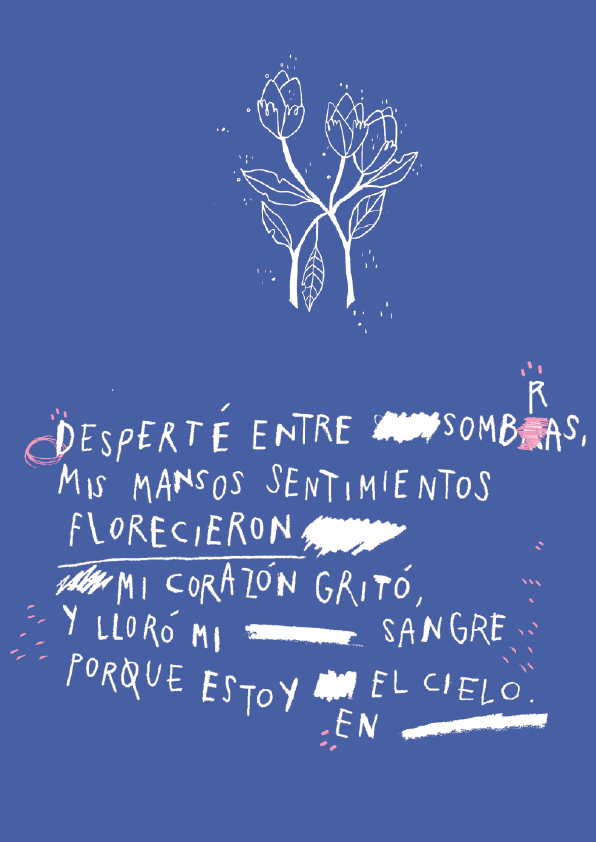 R
DESPERTÉ ENTRE SOMBRAS,
MIS MANSOS SENTIMIENTOS
FLORECIERON
MI CORAZÓN GRITÓ,
Y LLORÓ MI SANGRE
PORQUE ESTOY EL CIELO.
EN